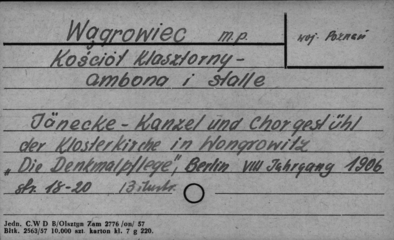 Wągrowiec m.p. woj. Poznań
Kościół Klasztorny-
ambona i stalle
Jänecke - Kanzel und Chorgestühl
der Klosterkirche in Wongrowitz
„Die Denkmalpflege", Berlin VIII Jahrgang 1906
str. 18-20 13 ilustr.
Jedn. C.W D B/Olsztyn Zam 2776 /on/ 57
Bltk. 2563/57 10,000 szt. karton kl. 7 g 220.